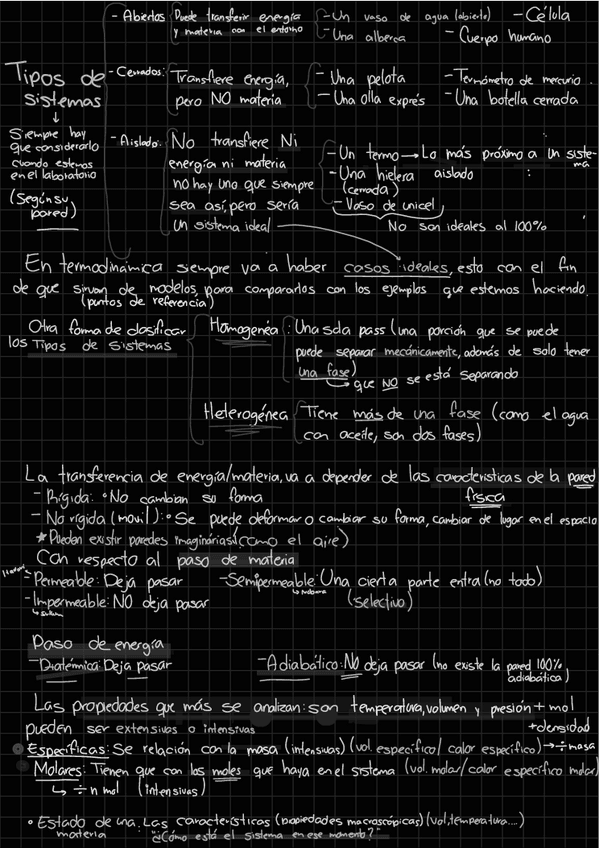 - Abiertos: Puede transferir energía y materia con el entorno
- Un vaso de agua (abierto)
- Una alberca
- Célula
- Cuerpo humano
Tipos de sistemas
↓
Siempre hay que considerarlo cuando estemos en el laboratorio
(Según su pared)
- Cerrados: Transfiere energía, pero NO materia
- Una pelota
- Una olla exprés
- Termómetro de mercurio
- Una botella cerrada
- Aislado: No transfiere Ni energía ni materia
no hay uno que siempre sea así, pero sería un sistema ideal
- Un termo → Lo más próximo a un sistema aislado
- Una hielera (cerrada)
- Vaso de unicel
No son ideales al 100%
En termodinámica siempre va a haber casos ideales, esto con el fin
de que sirvan de modelos para compararlos con los ejemplos que estemos haciendo.
(puntos de referencia)
Otra forma de clasificar los Tipos de sistemas
Homogenéa: Una sola pass (una porción que se puede
puede separar mecánicamente, además de solo tener
una fase)
→ que NO se está separando
Heterogénea
Tiene más de una fase (como el agua
con aceite, son dos fases)
La transferencia de energía/materia, va a depender de las características de la pared
física
- Rígida: • No cambian su forma
- No rígida (movil): • Se puede deformar o cambiar su forma, cambiar de lugar en el espacio
★ Pueden existir paredes imaginárias! (como el aire)
Con respecto al paso de materia
- Permeable: Deja pasar
- Semipermeable: Una cierta parte entra (no todo)
(selectivo)
- Impermeable: NO deja pasar
Paso de energía
- Diatérmica: Deja pasar
- Adiabático: NO deja pasar (no existe la pared 100% adiabática)
Las propiedades que más se analizan: son temperatura, volumen y presión + mol
+ densidad
pueden ser extensivas o intensivas
Específicas: Se relación con la masa (intensivas) (vol. específico/ calor específico) → ÷ masa
Molares: Tienen que con las moles que haya en el sistema (vol. molar/calor específico molar)
↳ ÷ n mol (intensivas)
• Estado de una materia: Las características (propiedades macroscópicas) (vol, temperatura....)
"¿Cómo está el sistema en ese momento?"